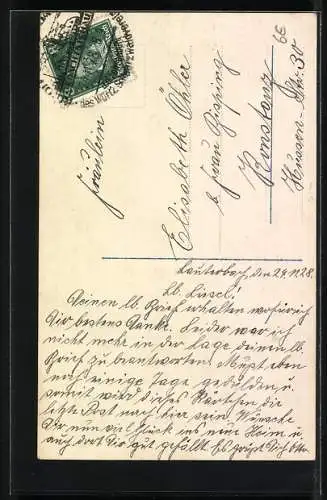 Fräulein
Elisabeth Öhler
b. Frau Gisping
Konstanz
Hussen-Str. 30
Lauterbach, den 29.11.28.
Lb. Liesel!
Deinen lb. Brief erhalten wofür ich
Dir bestens danke. Leider war ich
nicht mehr in der Lage deinen lb.
Brief zu beantworten. Mußt eben
noch einige Tage gedulden u.
somit wird dieses Kärtchen die
letzte Post nach hier sein. Wünsche
Dir nun viel Glück ins neue Heim u.
auch dort Dir gut gefällt. Es grüßt Dich Otto